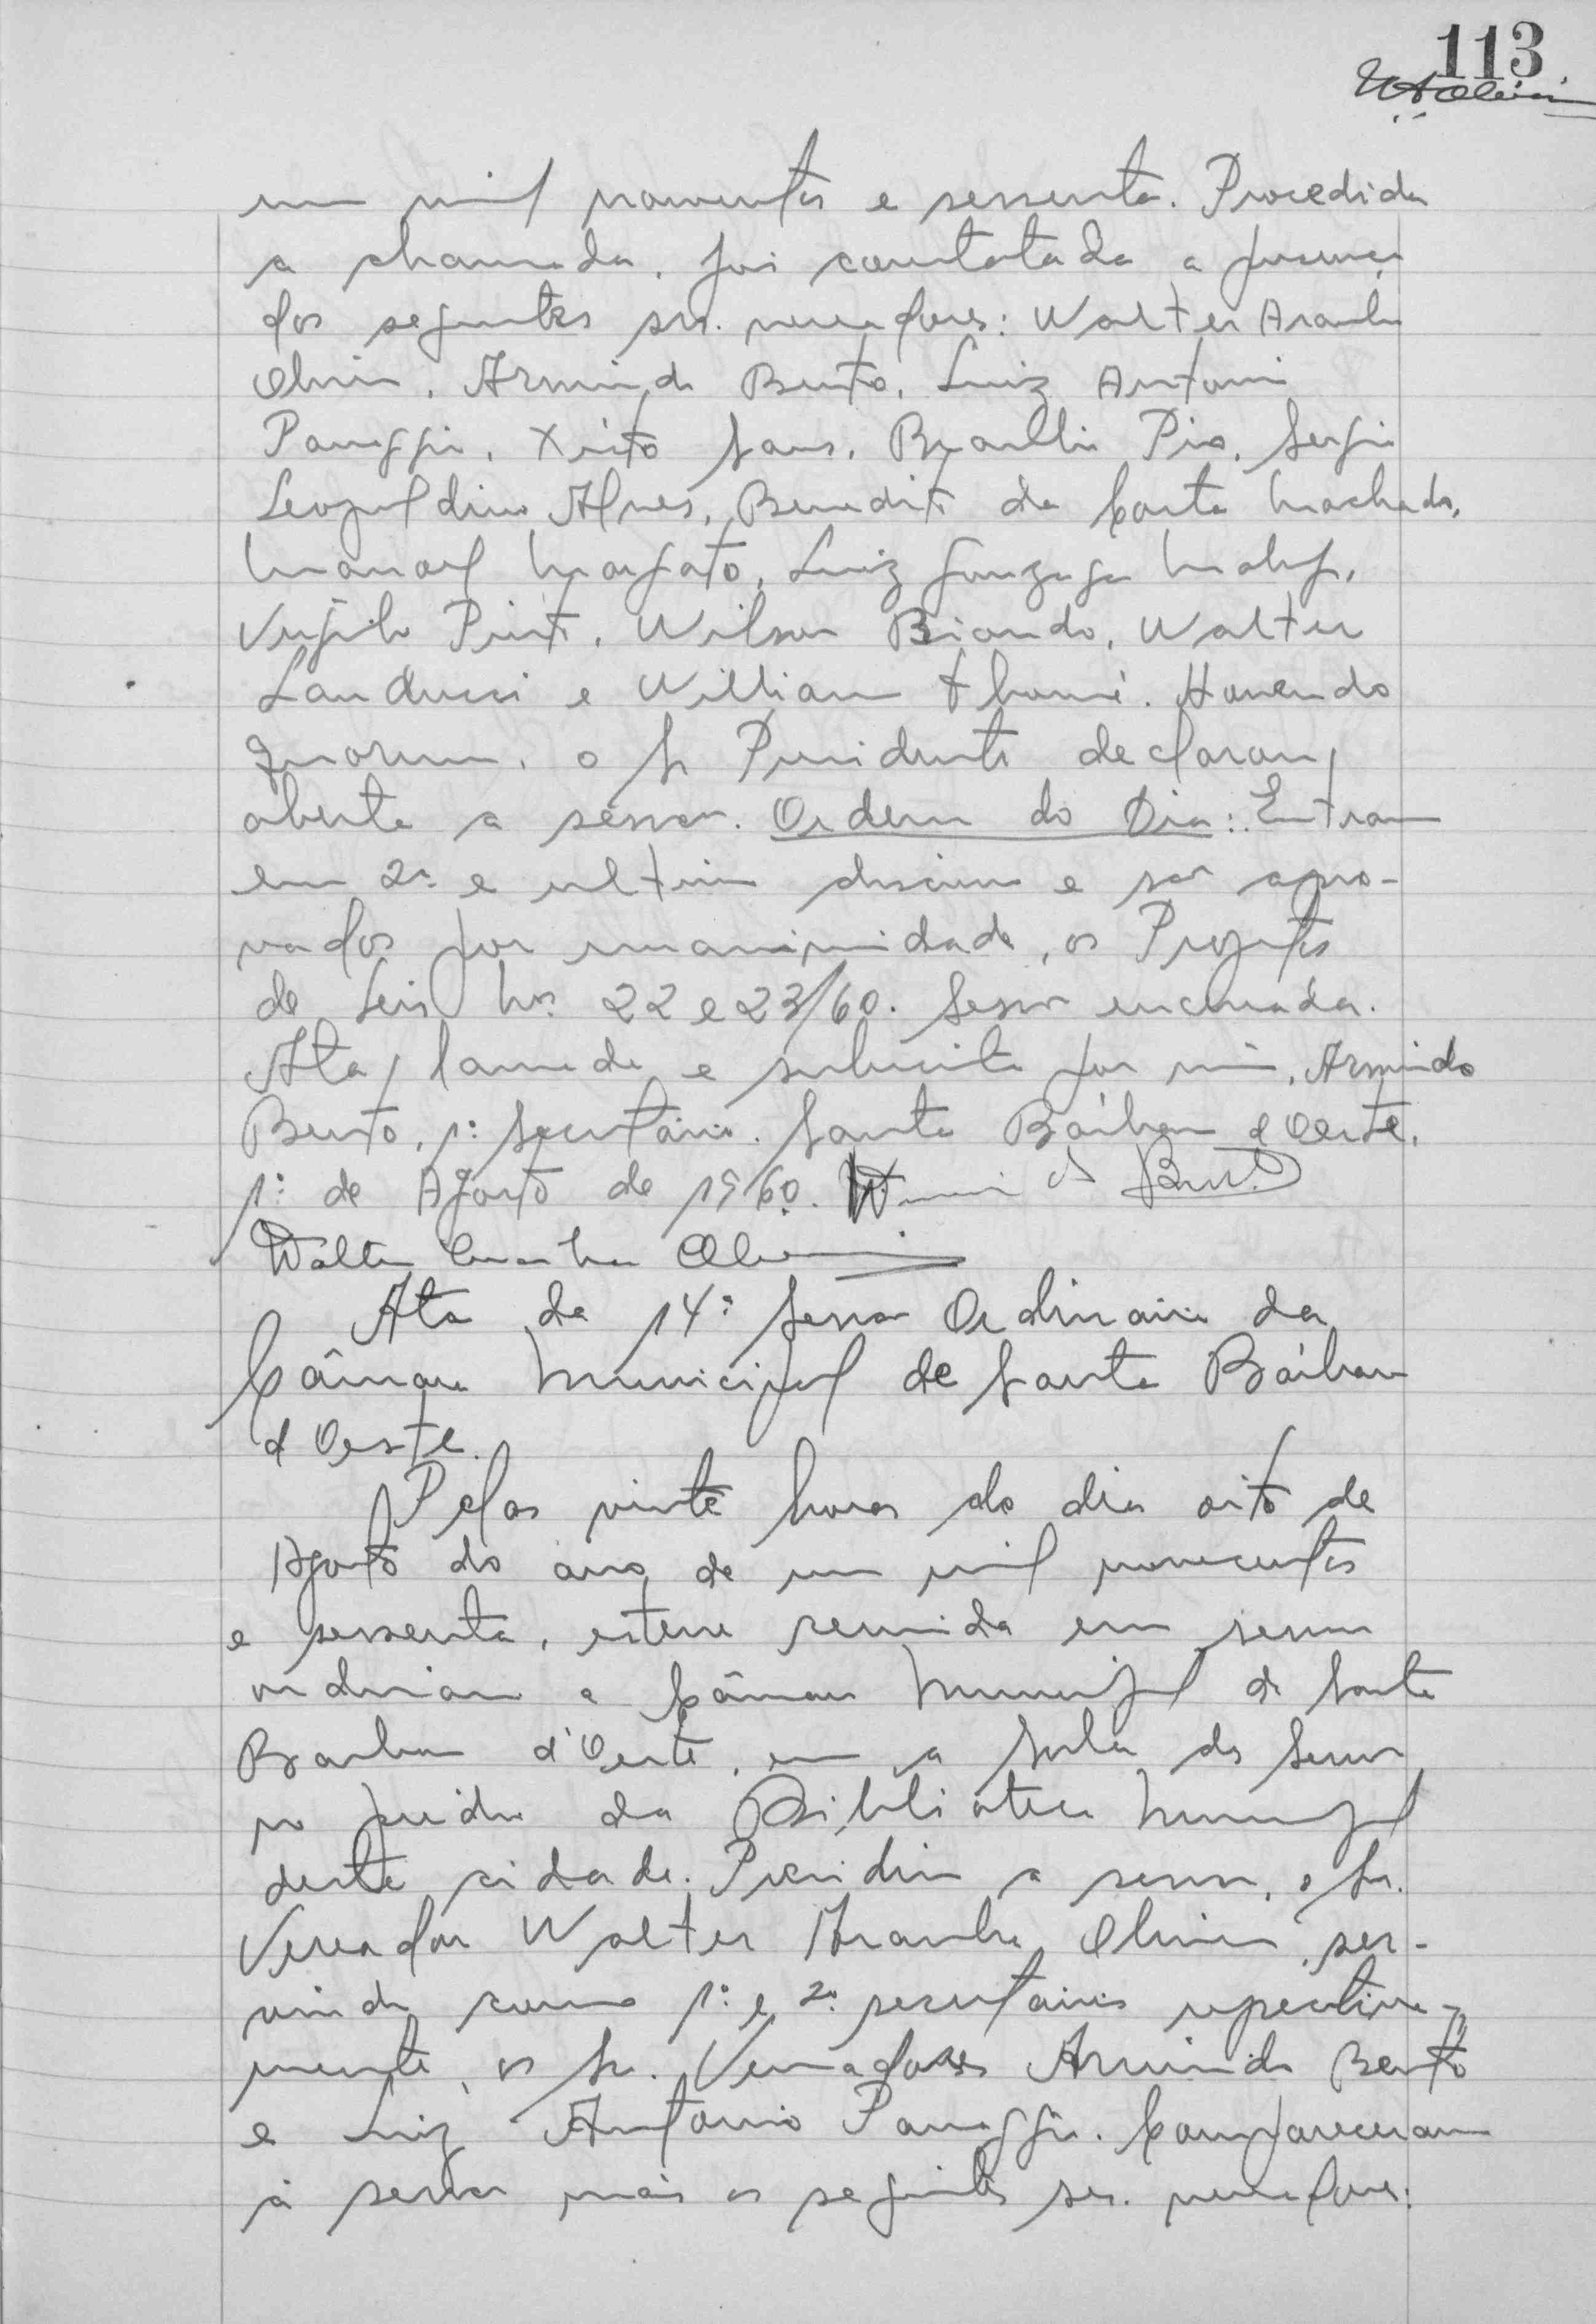 113
WAOliveira
um mil novecentos e sessenta. Procedida
a chamada, foi constatada a presença
dos seguintes srs. vereadores: Walter Aranha
Oliveira, Armindo Bento, Luiz Antonio
Panaggio, Xisto Sans, Braulio Pio, Sergio
Leopoldino Alves, Benedito da Costa Machado,
Manoel
Luiz Gonzaga
Virgilio Pinto, Wilson Biondo, Walter
Landucci e William Thomé. Havendo
quorum, o Sr Presidente declarou
aberta a sessão. Ordem do Dia: Entram
em 2ª e ultima discussão e são apro-
vados por unanimidade, os Projetos
de Leis Nos. 22 e 23/60. Sessão encerrada.
Ata lavrada e subscrita por mim, Armindo
Bento, 1º Secretário. Santa Bárbara d'Oeste,
1º de Agosto de 1960.
Walter Aranha Oliveira
Ata da 14ª Sessão Ordinaria da
Câmara Municipal de Santa Bárbara
d'Oeste.
Pelas vinte horas do dia oito de
Agosto do ano de um mil novecentos
e sessenta, esteve reunida em sessão
ordinaria a Câmara Municipal de Santa
Barbara d'Oeste, em a Sala das Sessões
no predio da Biblioteca Municipal
desta cidade. Presidiu a sessão, o Sr.
Vereador Walter Aranha Oliveira, ser-
vindo como 1º e 2º secretários respectiva-
mente, os Srs. Vereadores Armindo Bento
e Luiz Antonio Panaggio. Compareceram
à sessão mais os seguintes srs. vereadores: